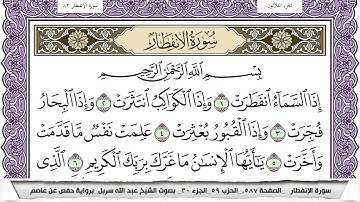 الجزء الثلاثون
سورة الإنفطار ٨٢
سُورَةُ الِانْفِطَارِ
بِسْمِ اللَّهِ الرَّحْمَٰنِ الرَّحِيمِ
إِذَا السَّمَاءُ انفَطَرَتْ ١ وَإِذَا الْكَوَاكِبُ انتَثَرَتْ ٢ وَإِذَا الْبِحَارُ
فُجِّرَتْ ٣ وَإِذَا الْقُبُورُ بُعْثِرَتْ ٤ عَلِمَتْ نَفْسٌ مَّا قَدَّمَتْ
وَأَخَّرَتْ ٥ يَا أَيُّهَا الْإِنسَانُ مَا غَرَّكَ بِرَبِّكَ الْكَرِيمِ ٦ الَّذِي
سورة الانفطار _الصفحة ٥٨٧. الحزب ٥٩ .الجزء ٣٠ بصوت الشيخ عبد الله سربل .برواية حفص عن عاصم